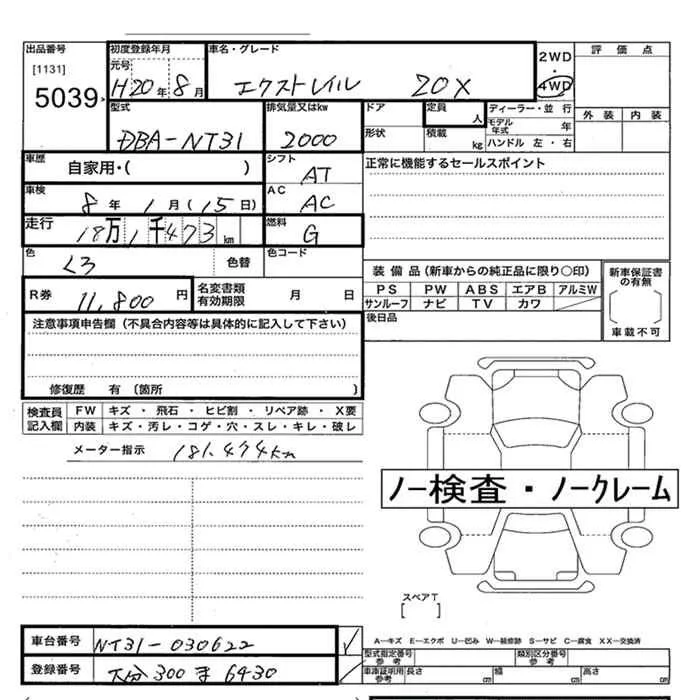 出品番号 初度登録年月 車名・グレード 評価点
[1131] 元号 2WD
5039 H20年8月 エクストレイル 20X ・4WD
型式 排気量又はkw ドア 定員 人 ディーラー・並行 外装 内装
DBA-NT31 2000 形状 積載 kg モデル年式 年
ハンドル 左・右
車歴 自家用・( ) シフト AT 正常に機能するセールスポイント
車検 8年1月(15日) AC AC
走行 18万1千473km 燃料 G
色 くろ 色替 色コード
装備品(新車からの純正品に限り○印) 新車保証書の有無
R券 11,800円 名変書類有効期限 月 日 PS PW ABS エアB アルミW
サンルーフ ナビ TV カワ 車載不可
注意事項申告欄(不具合内容等は具体的に記入して下さい) 後日品
修復歴 有(箇所 )
検査員記入欄 FW キズ・飛石・ヒビ割・リペア跡・X要
内装 キズ・汚レ・コゲ・穴・スレ・キレ・破レ
メーター指示 181,474km
ノー検査・ノークレーム
スペアT
[ ]
A―キズ E―エクボ U―凹み W―補修跡 S―サビ C―腐食 XX―交換済
車台番号 NT31-030622 型式指定番号 参考 類別区分番号 参考
登録番号 大分 300 ま 6430 車庫証明用 参考 長さ cm 幅 cm 高さ cm